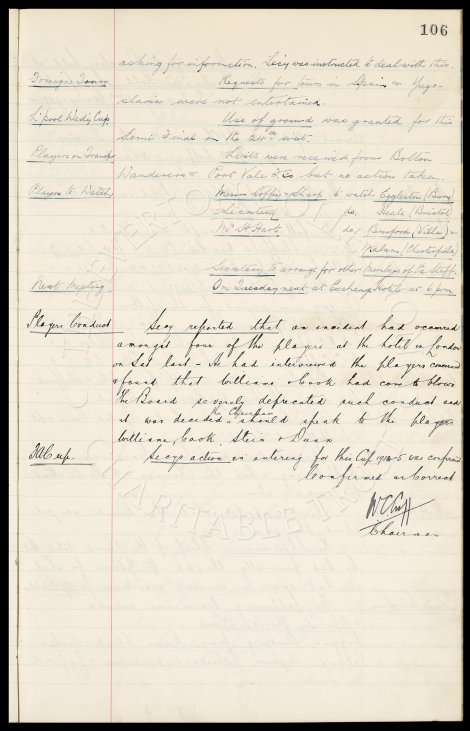 106
asking for information. Secy was instructed to deal with this.
Foreign Tours Requests for tours in Spain & Yugo-
slavia were not entertained.
L'pool Wedy Cup Use of ground was granted for this
Semi Final on the 24th inst.
Players on Transfer Lists were received from Bolton
Wanderers & Port Vale F.Cs but no action taken.
Players to Watch Messrs Coffey & Sharp to watch Eggleton (Bury)
Secretary do. (Bristol)
Mr A. Hart do. Beresford (Villa) &
(Chesterfield)
Secretary to arrange for other members of the Staff.
Next Meeting On Tuesday next at Exchange Hotel at 6 pm
Players Conduct Secy reported that an incident had occurred
amongst four of the players at the hotel in London
on Sat last - He had interviewed the players concerned
& found that Williams & Cook had come to blows
The Board severely deprecated such conduct and
it was decided the Chairman should speak to the players
Williams, Cook, Stein & Dunn
FA Cup. Secys action in entering for this Cup 1934-5 was confirmed
Confirmed as Correct
W C Cuff
Chairman
EVERTON COLLECTION
CHARITABLE TRUST